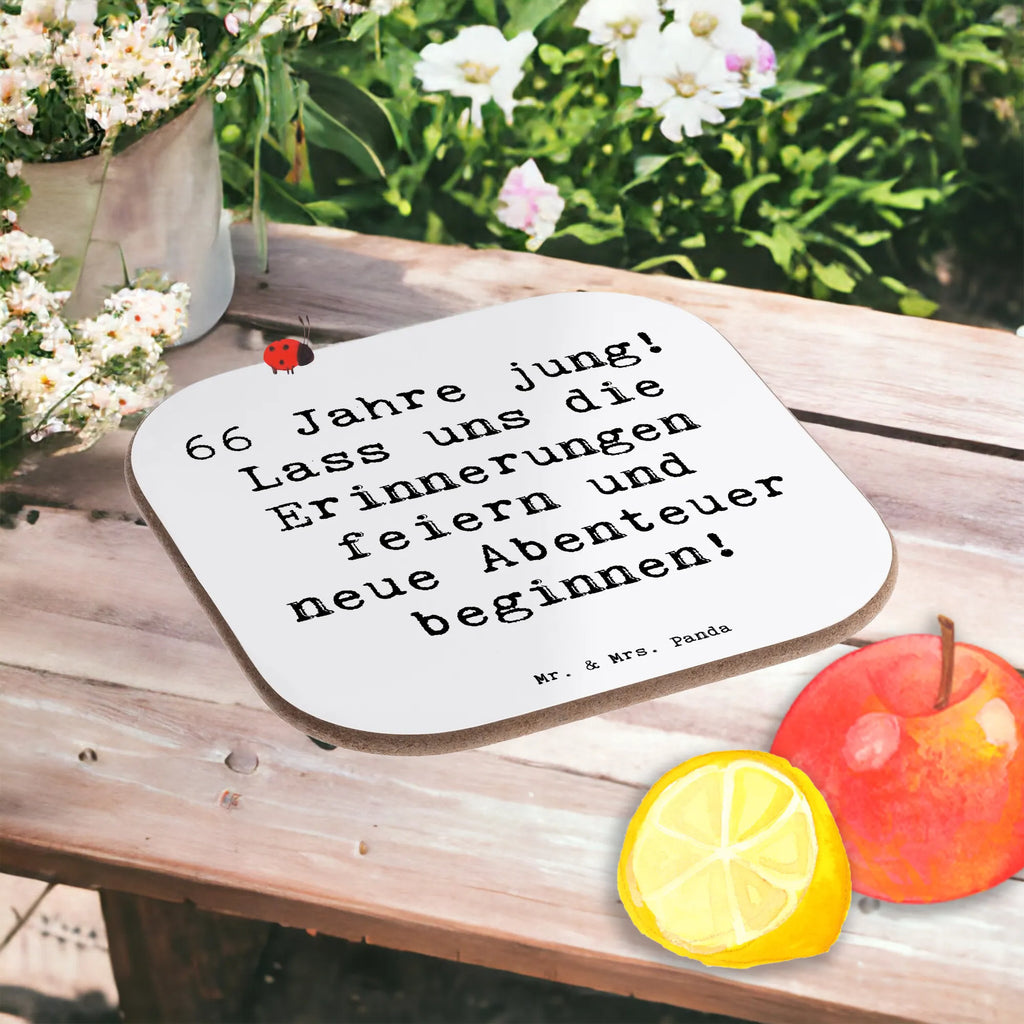 66 Jahre jung!
Lass uns die
Erinnerungen
feiern und
neue Abenteuer
beginnen!
Mr. & Mrs. Panda